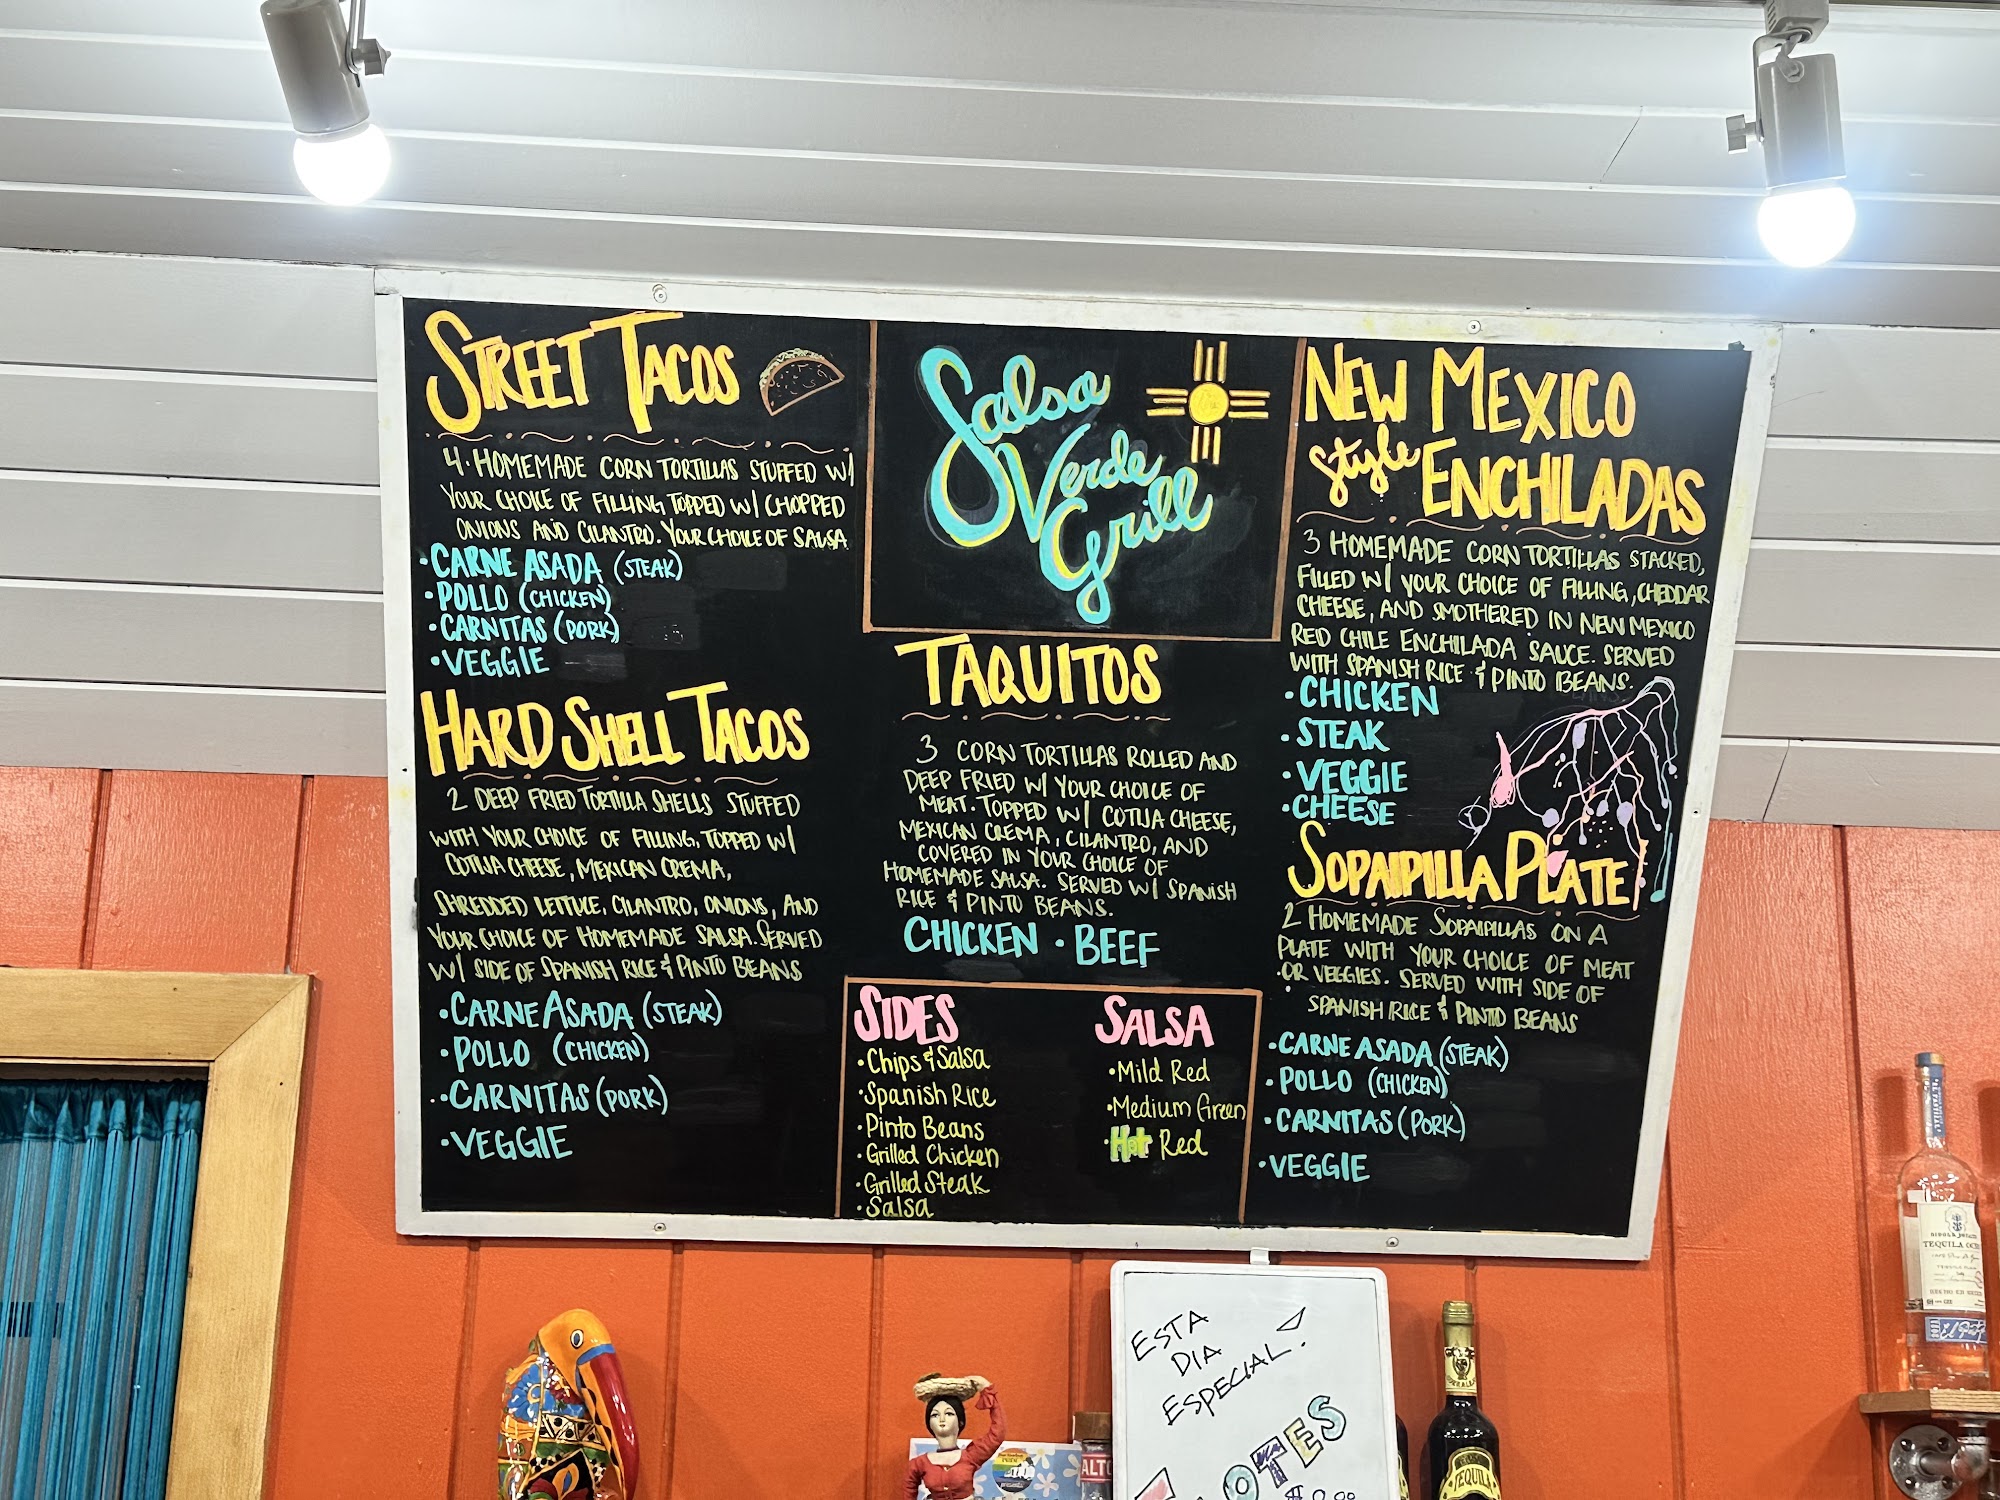 STREET TACOS
4. HOMEMADE CORN TORTILLAS STUFFED W/
YOUR CHOICE OF FILLING TOPPED W/ CHOPPED
ONIONS AND CILANTRO. YOUR CHOICE OF SALSA
• CARNE ASADA (STEAK)
• POLLO (CHICKEN)
• CARNITAS (PORK)
• VEGGIE
HARD SHELL TACOS
2 DEEP FRIED TORTILLA SHELLS STUFFED
WITH YOUR CHOICE OF FILLING, TOPPED W/
COTIJA CHEESE, MEXICAN CREMA,
SHREDDED LETTUCE, CILANTRO, ONIONS, AND
YOUR CHOICE OF HOMEMADE SALSA. SERVED
W/ SIDE OF SPANISH RICE & PINTO BEANS
• CARNE ASADA (STEAK)
• POLLO (CHICKEN)
• CARNITAS (PORK)
• VEGGIE
Salsa
Verde
Grill
TAQUITOS
3 CORN TORTILLAS ROLLED AND
DEEP FRIED W/ YOUR CHOICE OF
MEAT. TOPPED W/ COTIJA CHEESE,
MEXICAN CREMA, CILANTRO, AND
COVERED IN YOUR CHOICE OF
HOMEMADE SALSA. SERVED W/ SPANISH
RICE & PINTO BEANS.
CHICKEN • BEEF
SIDES
• Chips & Salsa
• Spanish Rice
• Pinto Beans
• Grilled Chicken
• Grilled Steak
• Salsa
SALSA
• Mild Red
• Medium Green
• Hot Red
NEW MEXICO
style ENCHILADAS
3 HOMEMADE CORN TORTILLAS STACKED,
FILLED W/ YOUR CHOICE OF FILLING, CHEDDAR
CHEESE, AND SMOTHERED IN NEW MEXICO
RED CHILE ENCHILADA SAUCE. SERVED
WITH SPANISH RICE & PINTO BEANS.
• CHICKEN
• STEAK
• VEGGIE
• CHEESE
SOPAIPILLA PLATE
2 HOMEMADE SOPAIPILLAS ON A
PLATE WITH YOUR CHOICE OF MEAT
OR VEGGIES. SERVED WITH SIDE OF
SPANISH RICE & PINTO BEANS
• CARNE ASADA (STEAK)
• POLLO (CHICKEN)
• CARNITAS (PORK)
• VEGGIE
ESTA
DIA
ESPECIAL!
ALTO
TEQUILA
TEQUILA